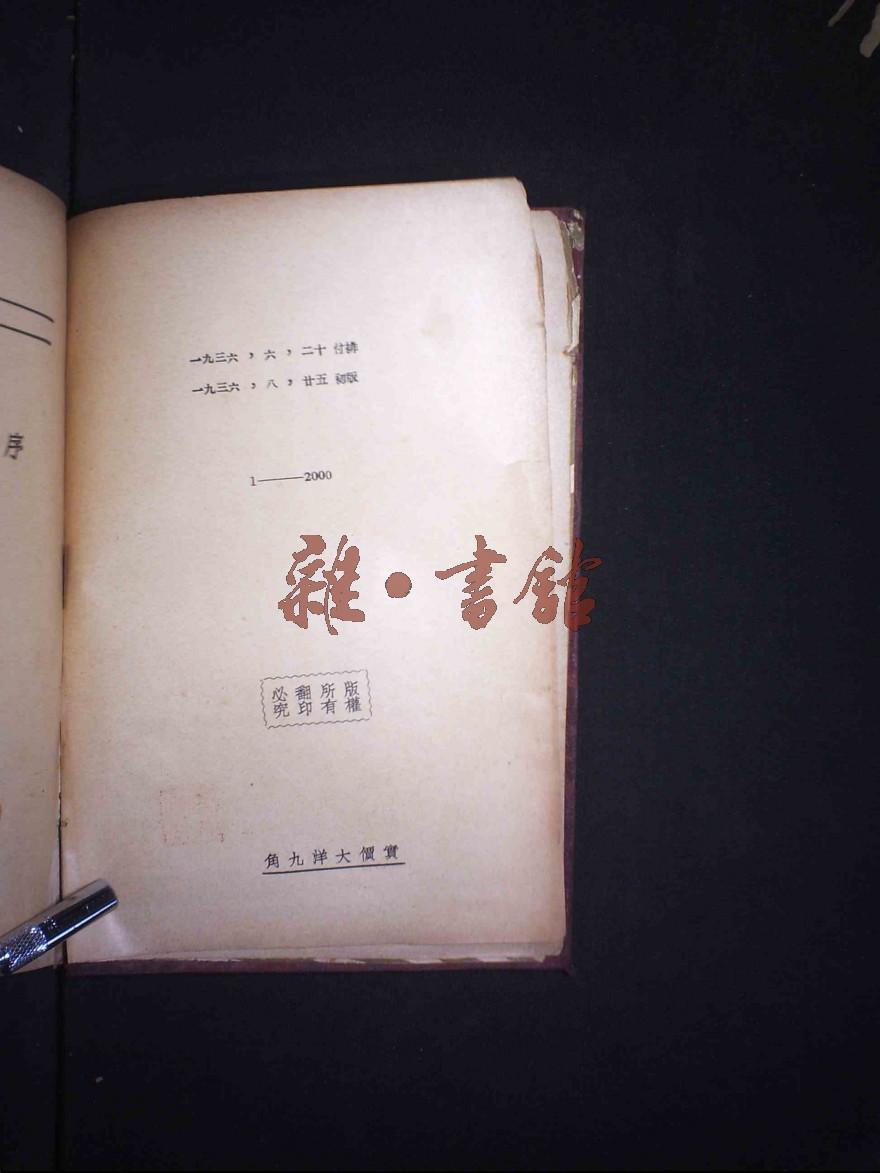 序
一九三六，六，二十 付排
一九三六，八，廿五 初版
1——2000
雜•書館
版權
所有
翻印
必究
實價大洋九角